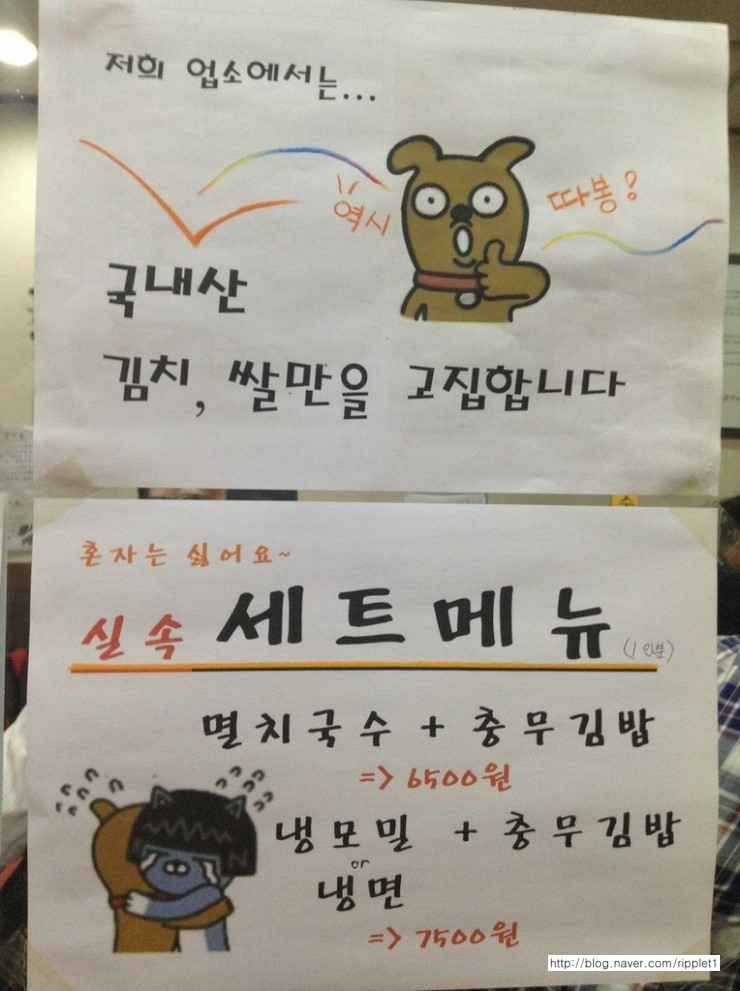 저희 업소에서는...
역시 따봉?
국내산
김치, 쌀만을 고집합니다
혼자는 싫어요~
실속 세트메뉴 (1인분)
멸치국수 + 충무김밥
=> 6500원
냉모밀 + 충무김밥
or
냉면
=> 7500원
http://blog.naver.com/ripplet1